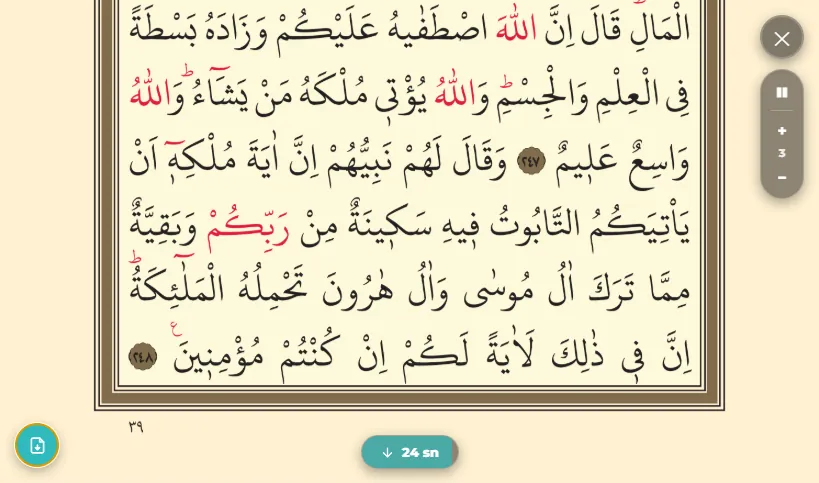 الْمَالِۜ قَالَ اِنَّ اللّٰهَ اصْطَفٰيهُ عَلَيْكُمْ وَزَادَهُ بَسْطَةً
فِى الْعِلْمِ وَالْجِسْمِۜ وَاللّٰهُ يُؤْت۪ى مُلْكَهُ مَنْ يَشَٓاءُۜ وَاللّٰهُ
وَاسِعٌ عَل۪يمٌ ٢٤٧ وَقَالَ لَهُمْ نَبِيُّهُمْ اِنَّ اٰيَةَ مُلْكِه۪ٓ اَنْ
يَأْتِيَكُمُ التَّابُوتُ ف۪يهِ سَك۪ينَةٌ مِنْ رَبِّكُمْ وَبَقِيَّةٌ
مِمَّا تَرَكَ اٰلُ مُوسٰى وَاٰلُ هٰرُونَ تَحْمِلُهُ الْمَلٰٓئِكَةُۜ
اِنَّ ف۪ى ذٰلِكَ لَاٰيَةً لَكُمْ اِنْ كُنْتُمْ مُؤْمِن۪ينَ۟ ع ٢٤٨
٣٩
3
24 sn